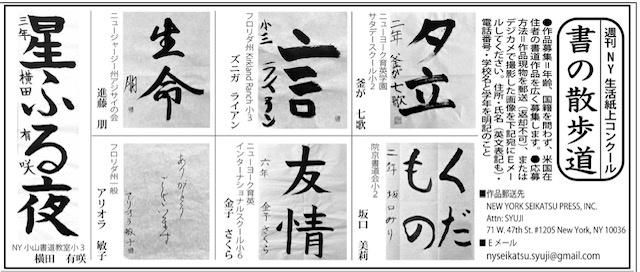 週刊NY生活紙上コンクール
書の散歩道
●作品募集＝年齢、国籍を問わず、米国在
住者の書道作品を広く募集します。●応募
方法＝作品現物を郵送（返却不可）、または
デジカメで撮影した画像を下記宛にEメー
ルしてください。住所・氏名（英文表記も）、
電話番号・学校名と学年を明記のこと
■作品郵送先
NEW YORK SEIKATSU PRESS, INC.
Attn: SYUJI
71 W. 47th St. #1205 New York, NY 10036
■Eメール
nyseikatsu.syuji@gmail.com
夕立
二年 釜が七歌
ニューヨーク育英学園
サタデースクール小2
釜が 七歌
くだ
もの
二年 坂口みり
院京書道会小2
坂口 美莉
言
小三 ライアン
フロリダ州 Kirkland Ranch 小3
ズニガ ライアン
友情
六年 金子さくら
ニューヨーク育英
インターナショナルスクール小6
金子 さくら
生命
朋
ニュージャージー州アジサイの会
進藤 朋
ありがとう
ございます
アリオラ敏子
フロリダ州一般
アリオラ 敏子
星ふる夜
三年 横田有咲
NY小山書道教室小3
横田 有咲